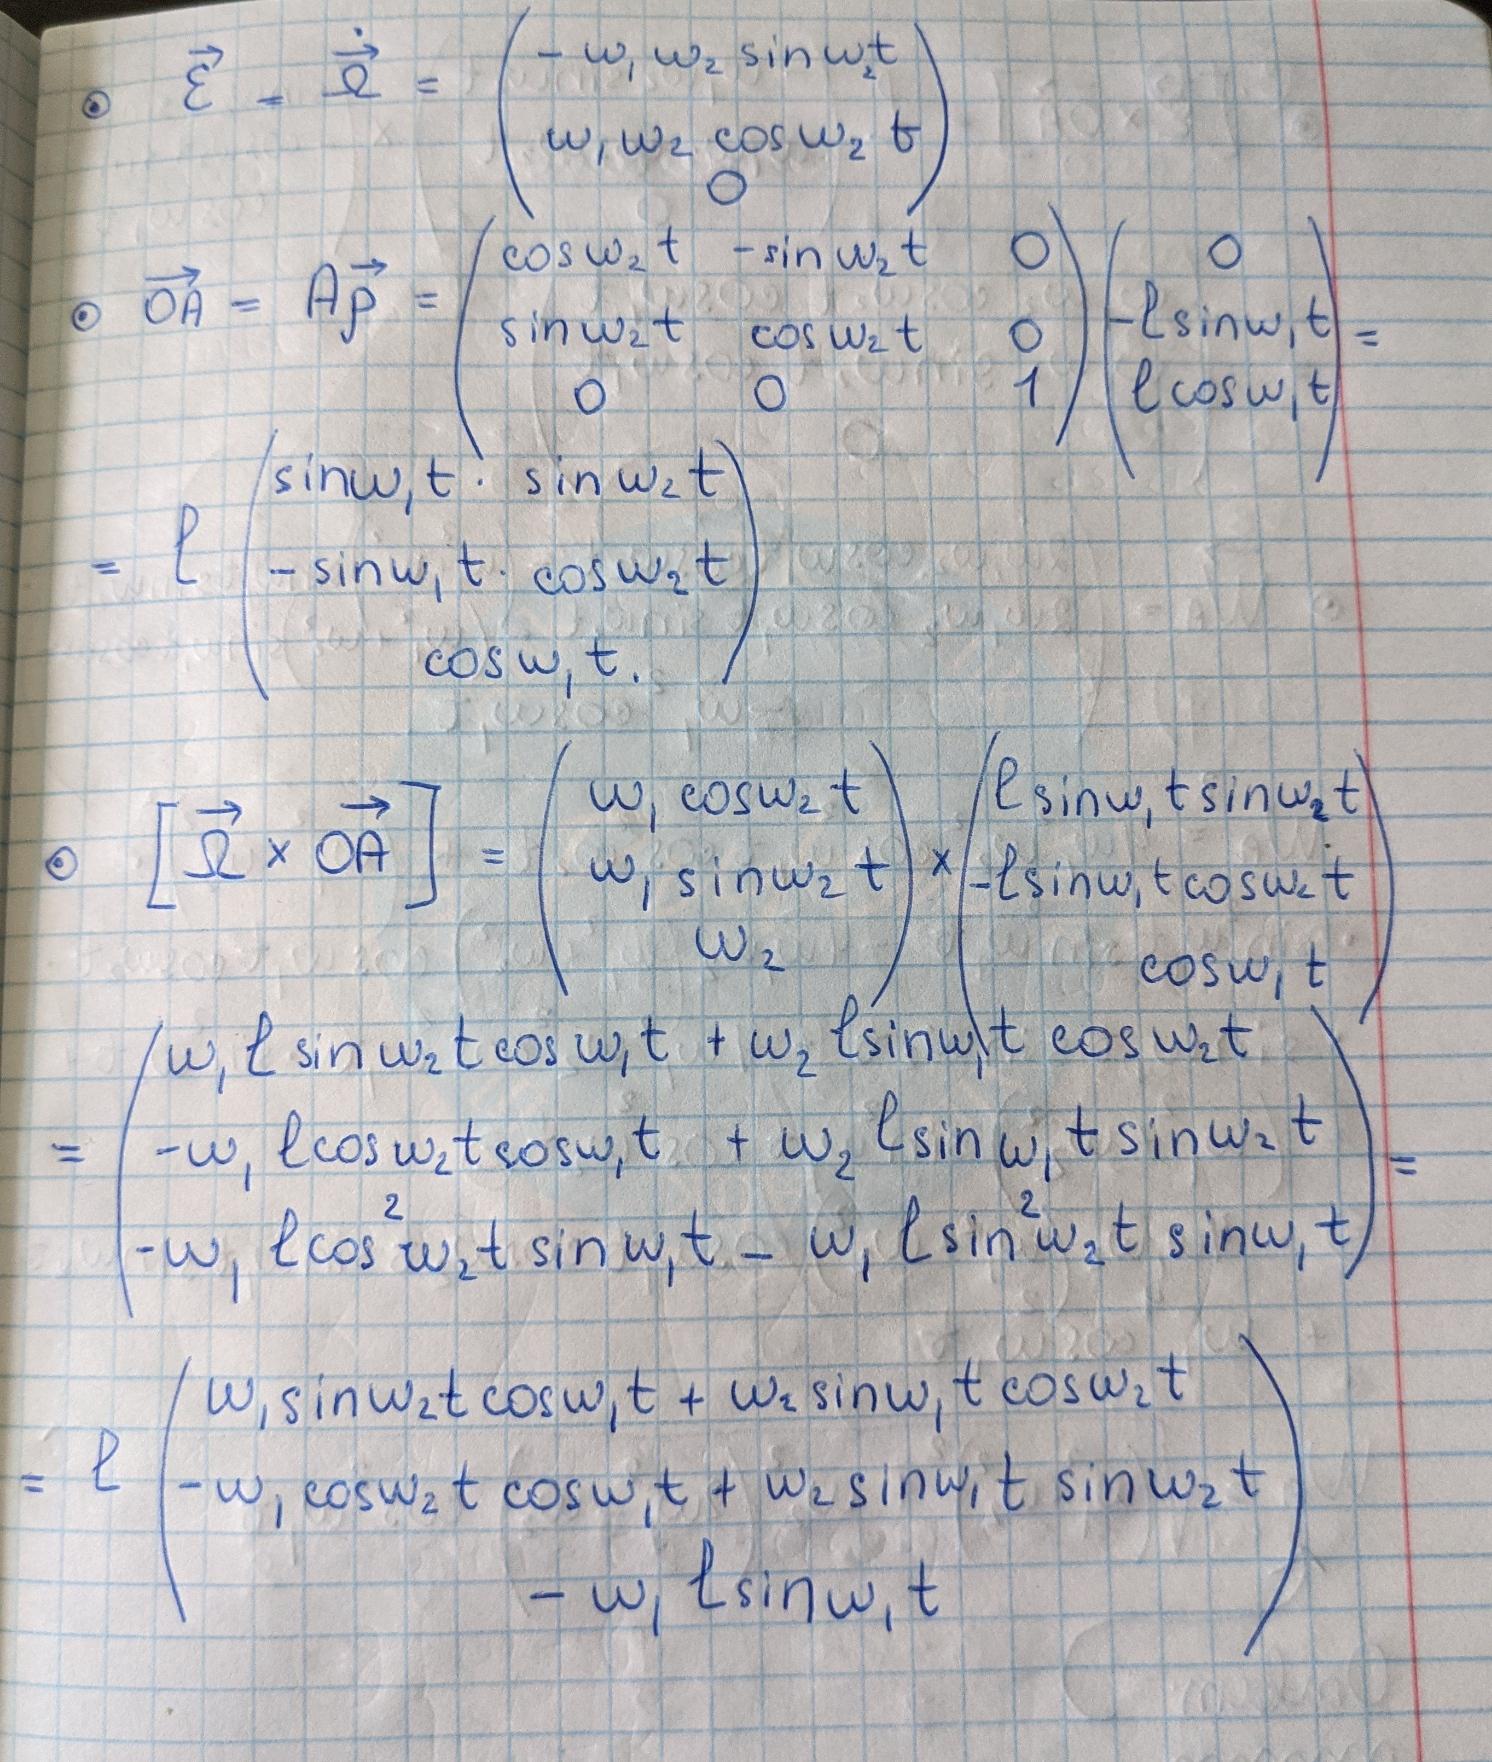 ⊙ ε⃗ = Ω⃗̇ = ( -ω₁ω₂ sinω₂t
ω₁ω₂ cosω₂t
0 )
⊙ OA⃗ = Aρ⃗ = ( cosω₂t -sinω₂t 0 ) ( 0 )
( sinω₂t cosω₂t 0 ) ( -ℓsinω₁t ) =
( 0 0 1 ) ( ℓcosω₁t )
= ℓ ( sinω₁t · sinω₂t
-sinω₁t · cosω₂t
cosω₁t. )
⊙ [Ω⃗ × OA⃗] = ( ω₁cosω₂t ) × ( ℓsinω₁t sinω₂t )
( ω₁sinω₂t ) ( -ℓsinω₁t cosω₂t )
( ω₂ ) ( cosω₁t )
= ( ω₁ℓsinω₂t cosω₁t + ω₂ℓsinω₁t cosω₂t
-ω₁ℓcosω₂t cosω₁t + ω₂ℓsinω₁t sinω₂t
-ω₁ℓcos²ω₂t sinω₁t - ω₁ℓsin²ω₂t sinω₁t ) =
= ℓ ( ω₁sinω₂t cosω₁t + ω₂sinω₁t cosω₂t
-ω₁cosω₂t cosω₁t + ω₂sinω₁t sinω₂t
-ω₁ℓsinω₁t )